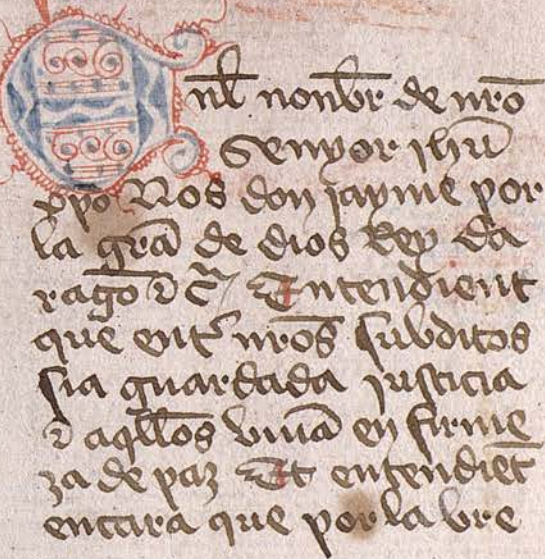 Enl nonbr de nro
Senyor jhu
xpo Nos don jayme por
la gra de dios Rey da
rago & c̃ Entendient
que ent nros subditos
sia guardada justicia
& aqllos biua en firme
za de paz Et entendiet
encara que por la bre